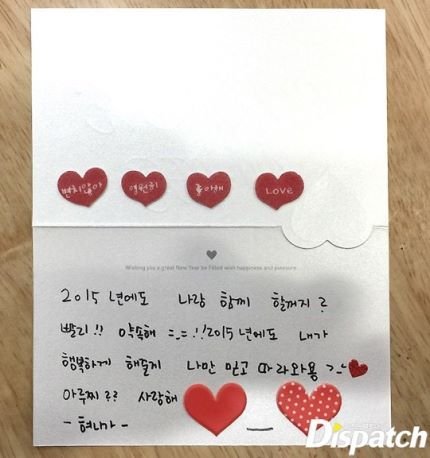 변치않아 영원히 좋아해 Love
Wishing you a great New Year be filled wish happiness and pleasure
2015 년에도 나랑 함께 할꺼지?
빨리!! 약속해 =_= !!2015년에도 내가
행복하게 해줄게 나만 믿고 따라와용 >.<
아루찌?? 사랑해
- 혀니가 -
Dispatch